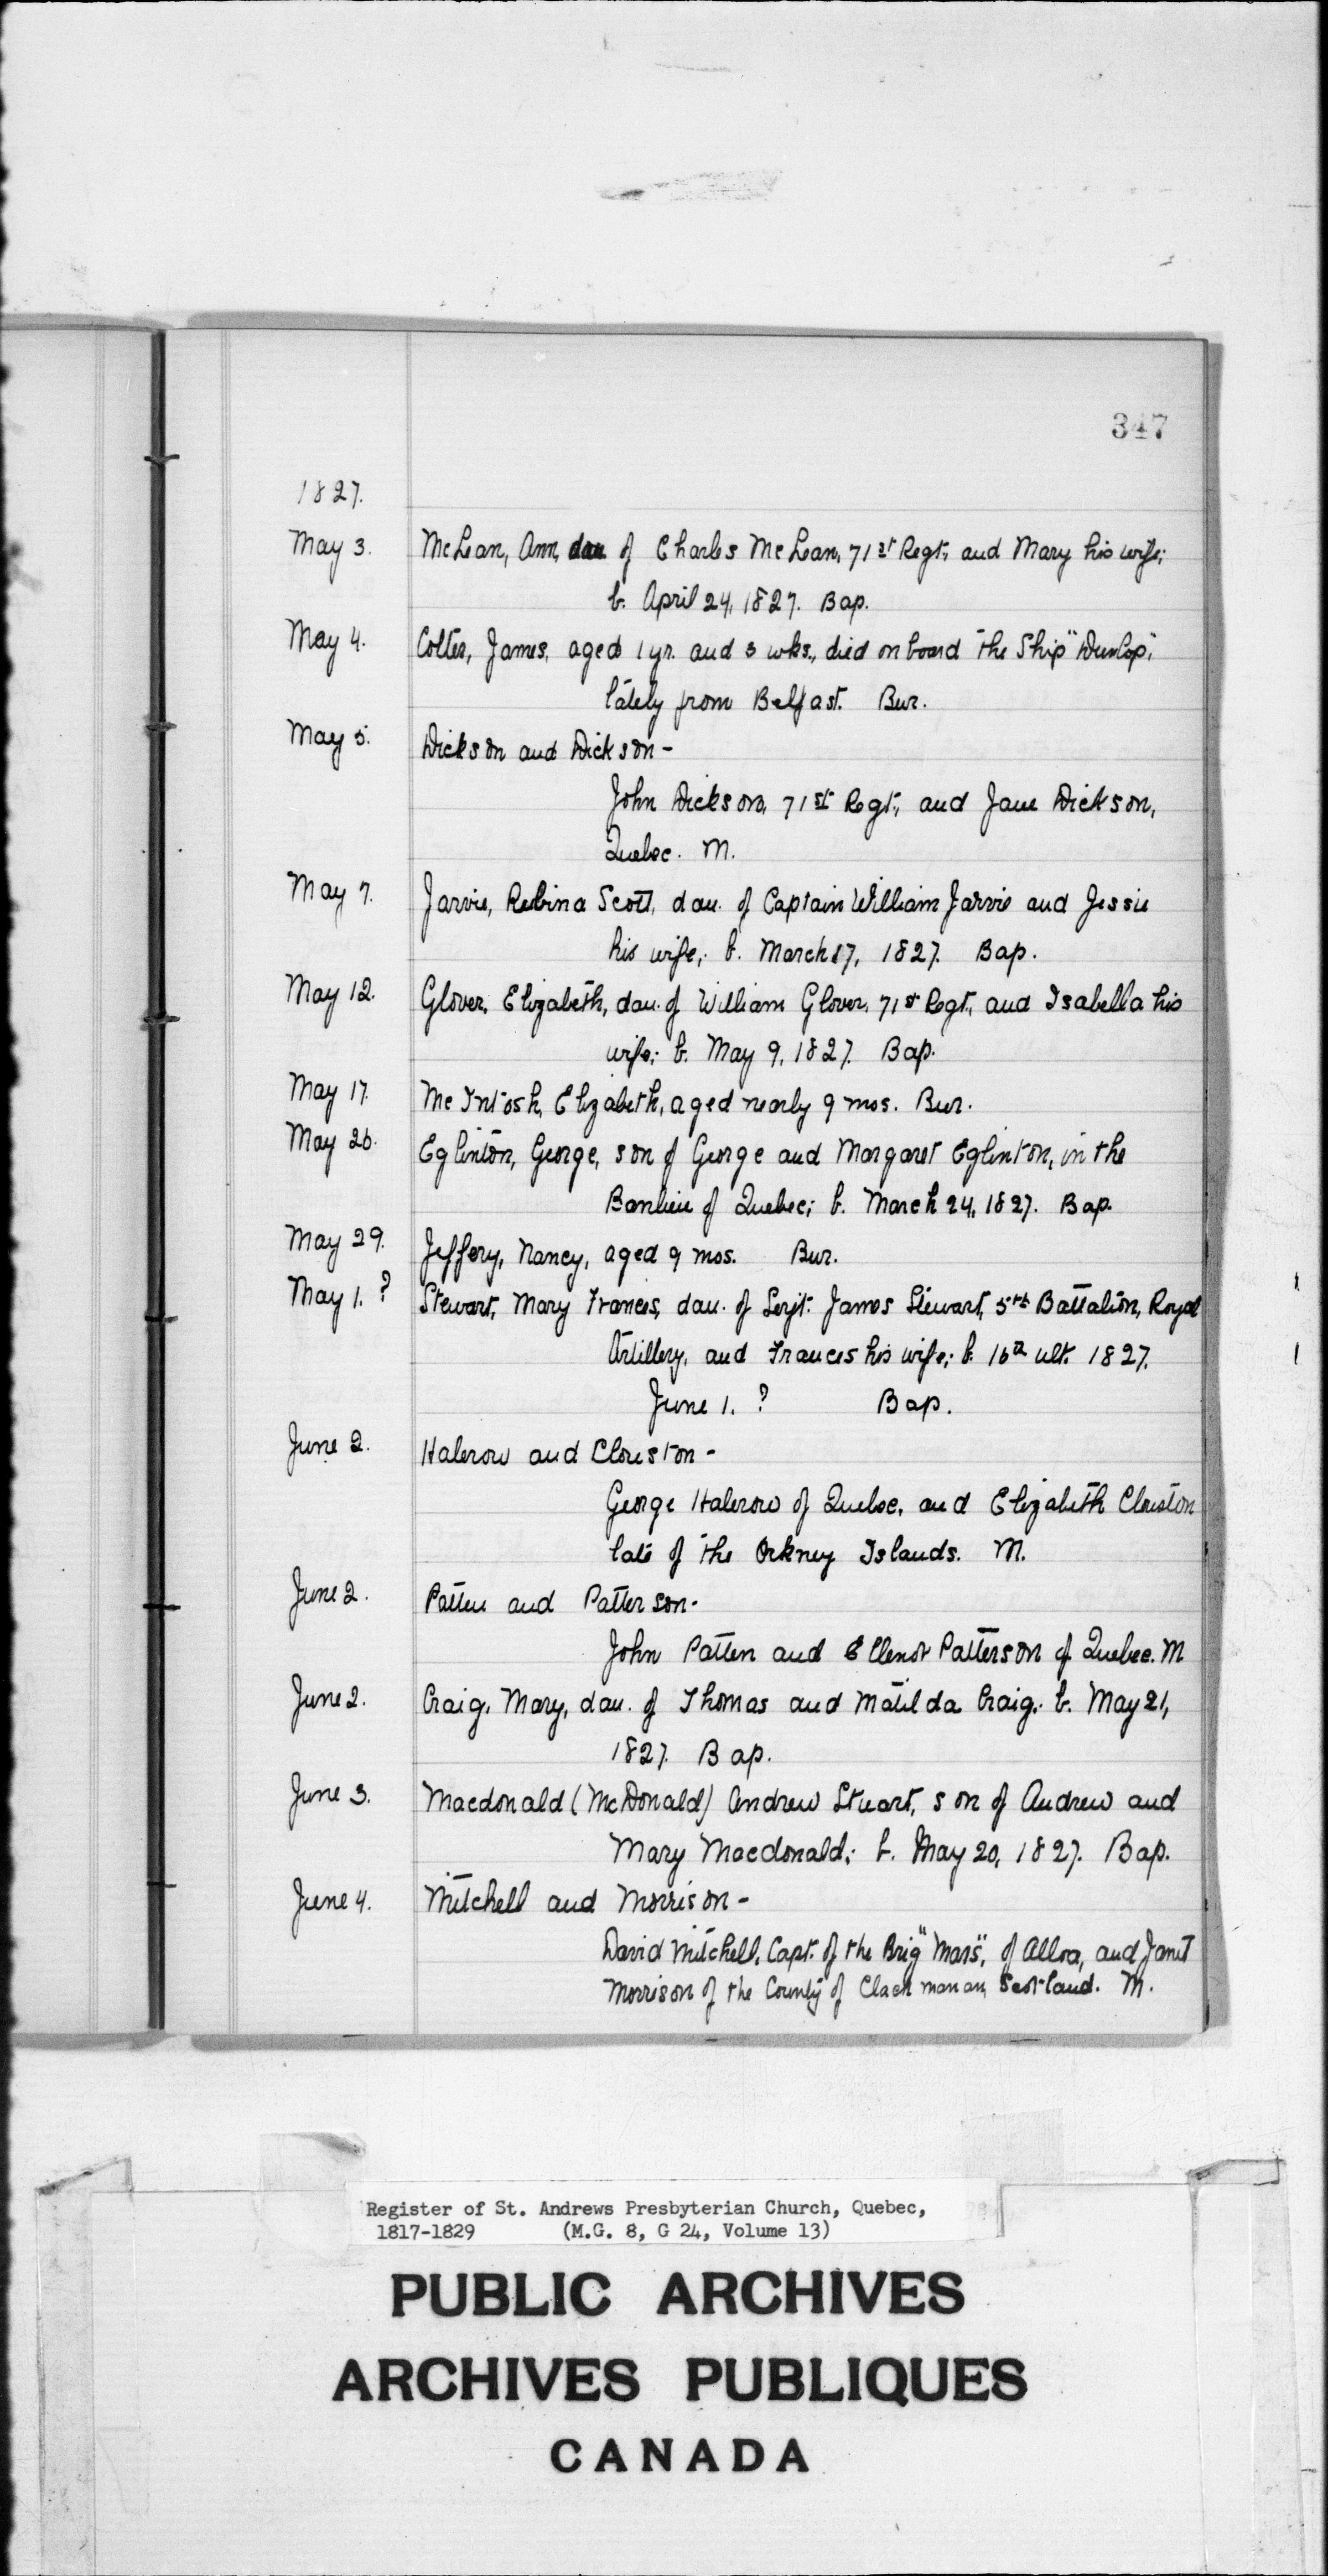 347
1827.
May 3. McLean, Ann, dau of Charles McLean, 71st Regt, and Mary his wife;
b. April 24, 1827. Bap.
May 4. Colter, James, aged 1 yr. and 3 wks., died on board the Ship "Dunlop",
lately from Belfast. Bur.
May 5. Dickson and Dickson -
John Dickson, 71st Regt, and Jane Dickson,
Quebec. M.
May 7. Jarvie, Robina Scott, dau. of Captain William Jarvie and Jessie
his wife; b. March 17, 1827. Bap.
May 12. Glover, Elizabeth, dau. of William Glover, 71st Regt, and Isabella his
wife; b. May 9, 1827. Bap.
May 17. McIntosh, Elizabeth, aged nearly 9 mos. Bur.
May 26. Eglinton, George, son of George and Margaret Eglinton, in the
Banlieu of Quebec; b. March 24, 1827. Bap.
May 29. Jeffery, Nancy, aged 9 mos. Bur.
May 1. ? Stewart, Mary Frances, dau. of Serjt. James Stewart, 5th Battalion, Royal
Artillery, and Frances his wife; b. 16th ult. 1827.
June 1. ? Bap.
June 2. Halcrow and Clouston -
George Halcrow of Quebec, and Elizabeth Clouston
late of the Orkney Islands. M.
June 2. Patten and Patterson -
John Patten and Ellenor Patterson of Quebec. M
June 2. Craig, Mary, dau. of Thomas and Matilda Craig; b. May 21,
1827. Bap.
June 3. Macdonald (McDonald) Andrew Stuart, son of Andrew and
Mary Macdonald; b. May 20, 1827. Bap.
June 4. Mitchell and Morrison -
David Mitchell, Capt. of the Brig "Mars", of Alloa, and Janet
Morrison of the County of Clackmanan, Scotland. M.
Register of St. Andrews Presbyterian Church, Quebec,
1817-1829 (M.G. 8, G 24, Volume 13)
PUBLIC ARCHIVES
ARCHIVES PUBLIQUES
CANADA